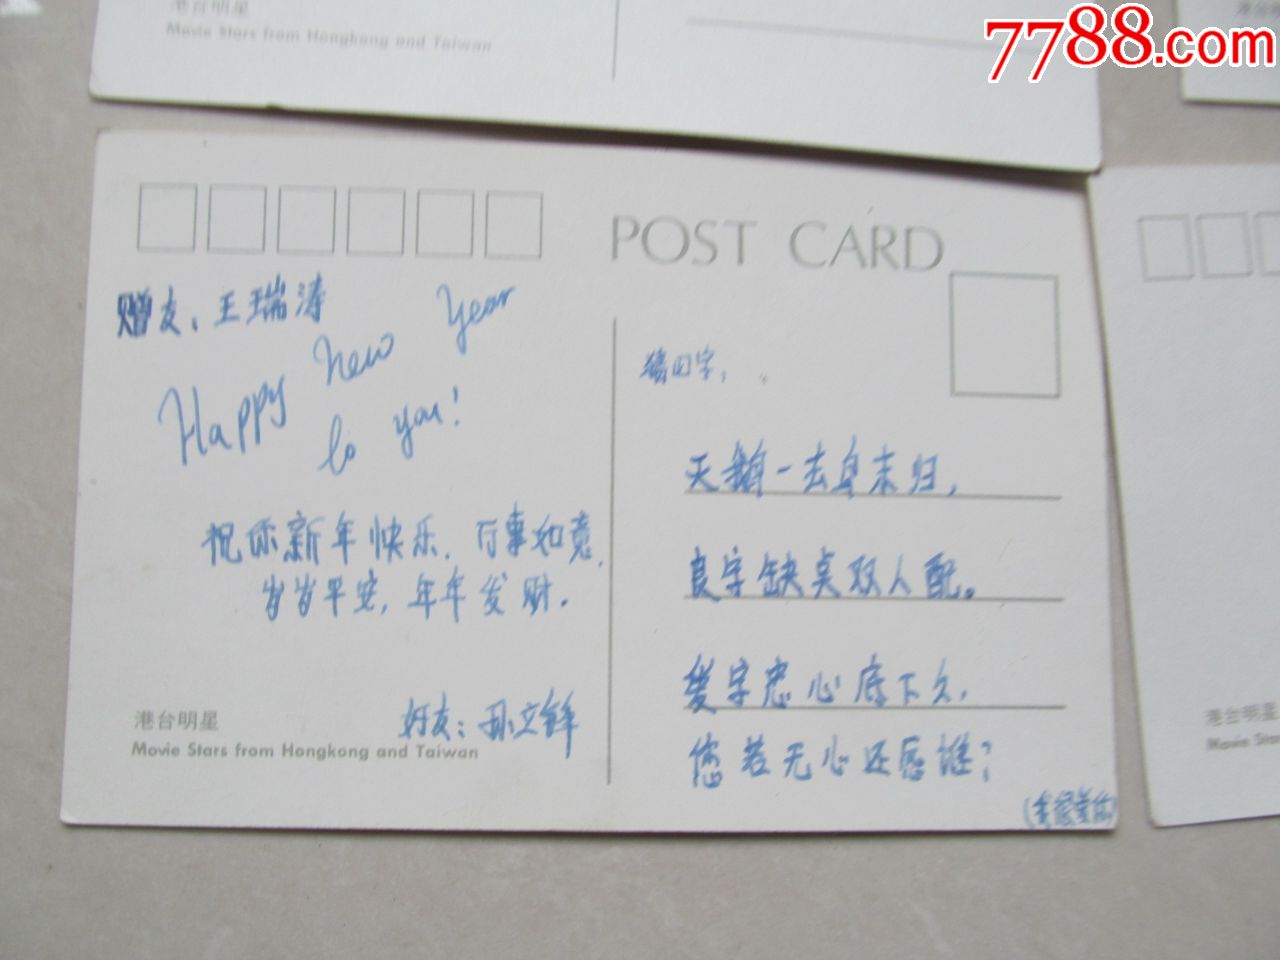 港台明星
Movie Stars from Hongkong and Taiwan
7788.com
POST CARD
赠友、王瑞涛
Happy new Year
to you!
祝你新年快乐、万事如意、
岁岁平安,年年发财.
好友:孙立锋
港台明星
Movie Stars from Hongkong and Taiwan
猜四字:
天鹅一去鸟未归,
良字缺点双人配。
爱字忠心底下久,
您若无心还愿谁?
(我很爱你)
港台明星
Movie Stars